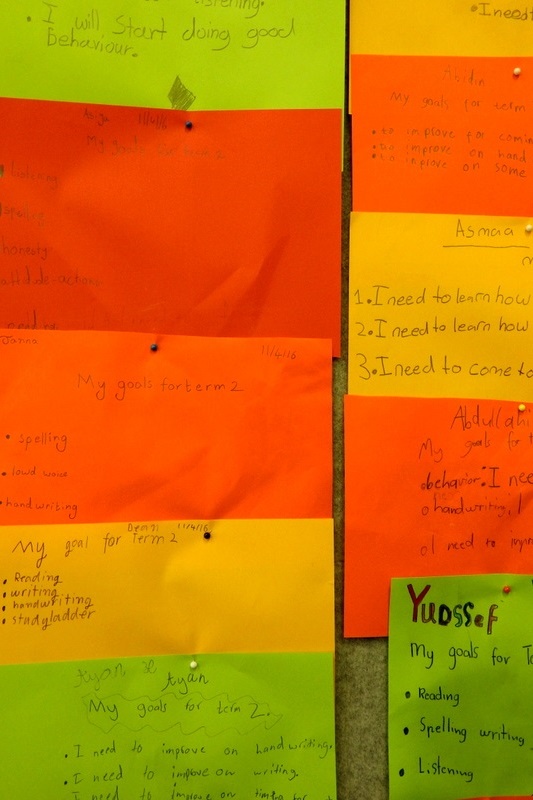 Listening.
• I will Start doing good
Behaviour.
11/4/16
My goals for term 2
Listening
spelling
honesty
attitude-actions
Janna
11/4/16
My goals for term 2
• spelling
• lowd voice
• handwriting
11/4/16
My goal for Term 2
• Reading
• writing
• handwriting
• studyladder
ryan
My goals for term 2.
• I need to improve on handwriting.
• I need to improve on writing.
• I need to improve on
• I need
Abidin
My goals for term
• to improve for
• to improve on hand
• to inprove on some
Asmaa
1. I need to learn how
2. I need to learn how
3. I need to come to
Abdullahi
My goals for t
behavior: I nee
handwriting, I
I need to impr
Yuossef
My goals for Te
• Reading
• Spelling writing
• Listening